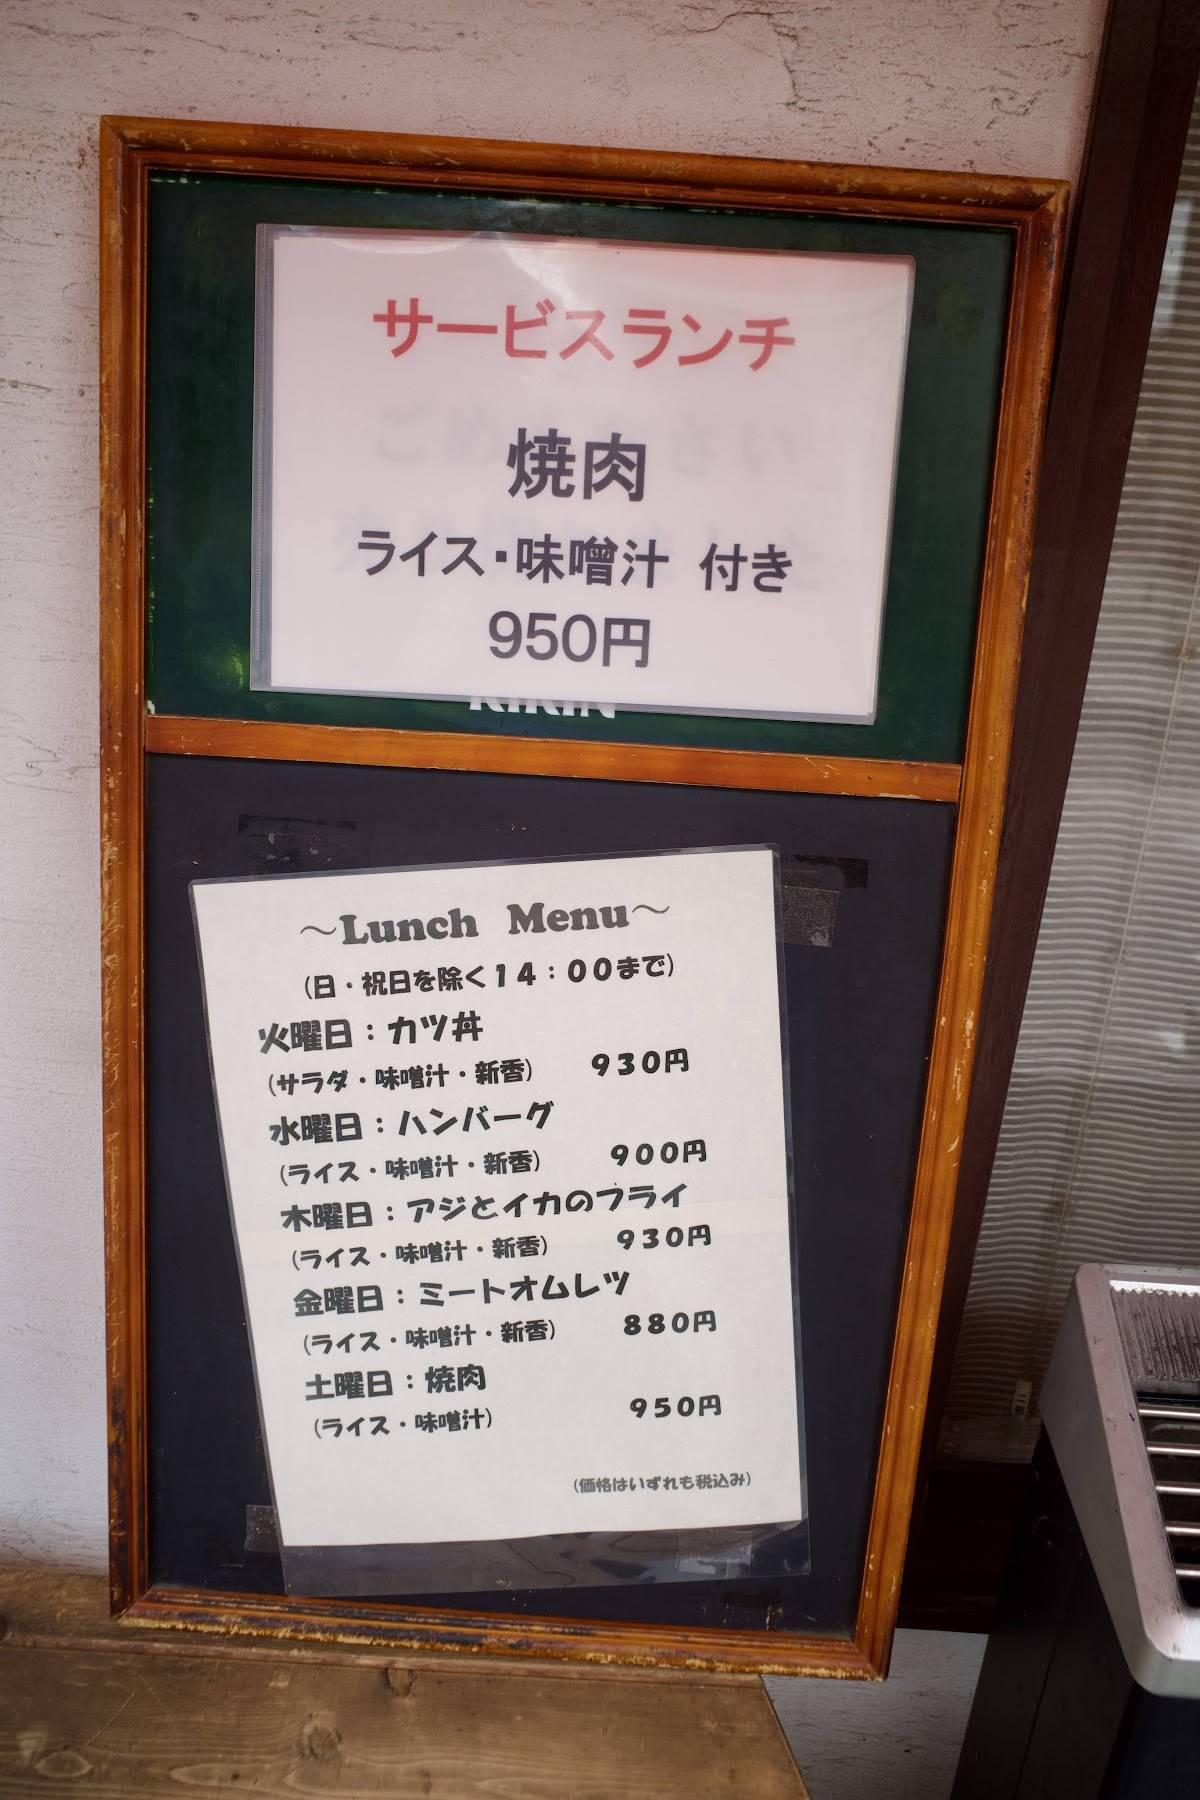 サービスランチ
焼肉
ライス・味噌汁 付き
950円
KIRIN
～Lunch Menu～
(日・祝日を除く14：00まで)
火曜日：カツ丼
(サラダ・味噌汁・新香) 930円
水曜日：ハンバーグ
(ライス・味噌汁・新香) 900円
木曜日：アジとイカのフライ
(ライス・味噌汁・新香) 930円
金曜日：ミートオムレツ
(ライス・味噌汁・新香) 880円
土曜日：焼肉
(ライス・味噌汁) 950円
(価格はいずれも税込み)